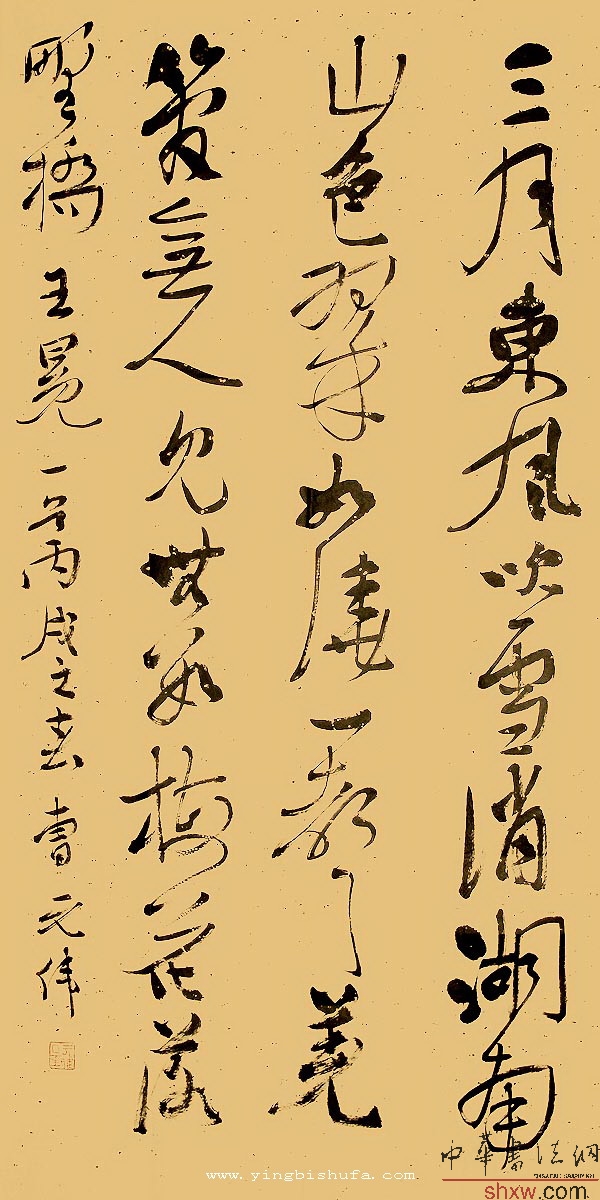 三月東風吹雪消湖南
山色翠如一聲羌
管無人見無數梅花落
野橋 王冕一首丙戌之春 曹元偉
中華書法網
shxw.com
www.yingbishufa.com